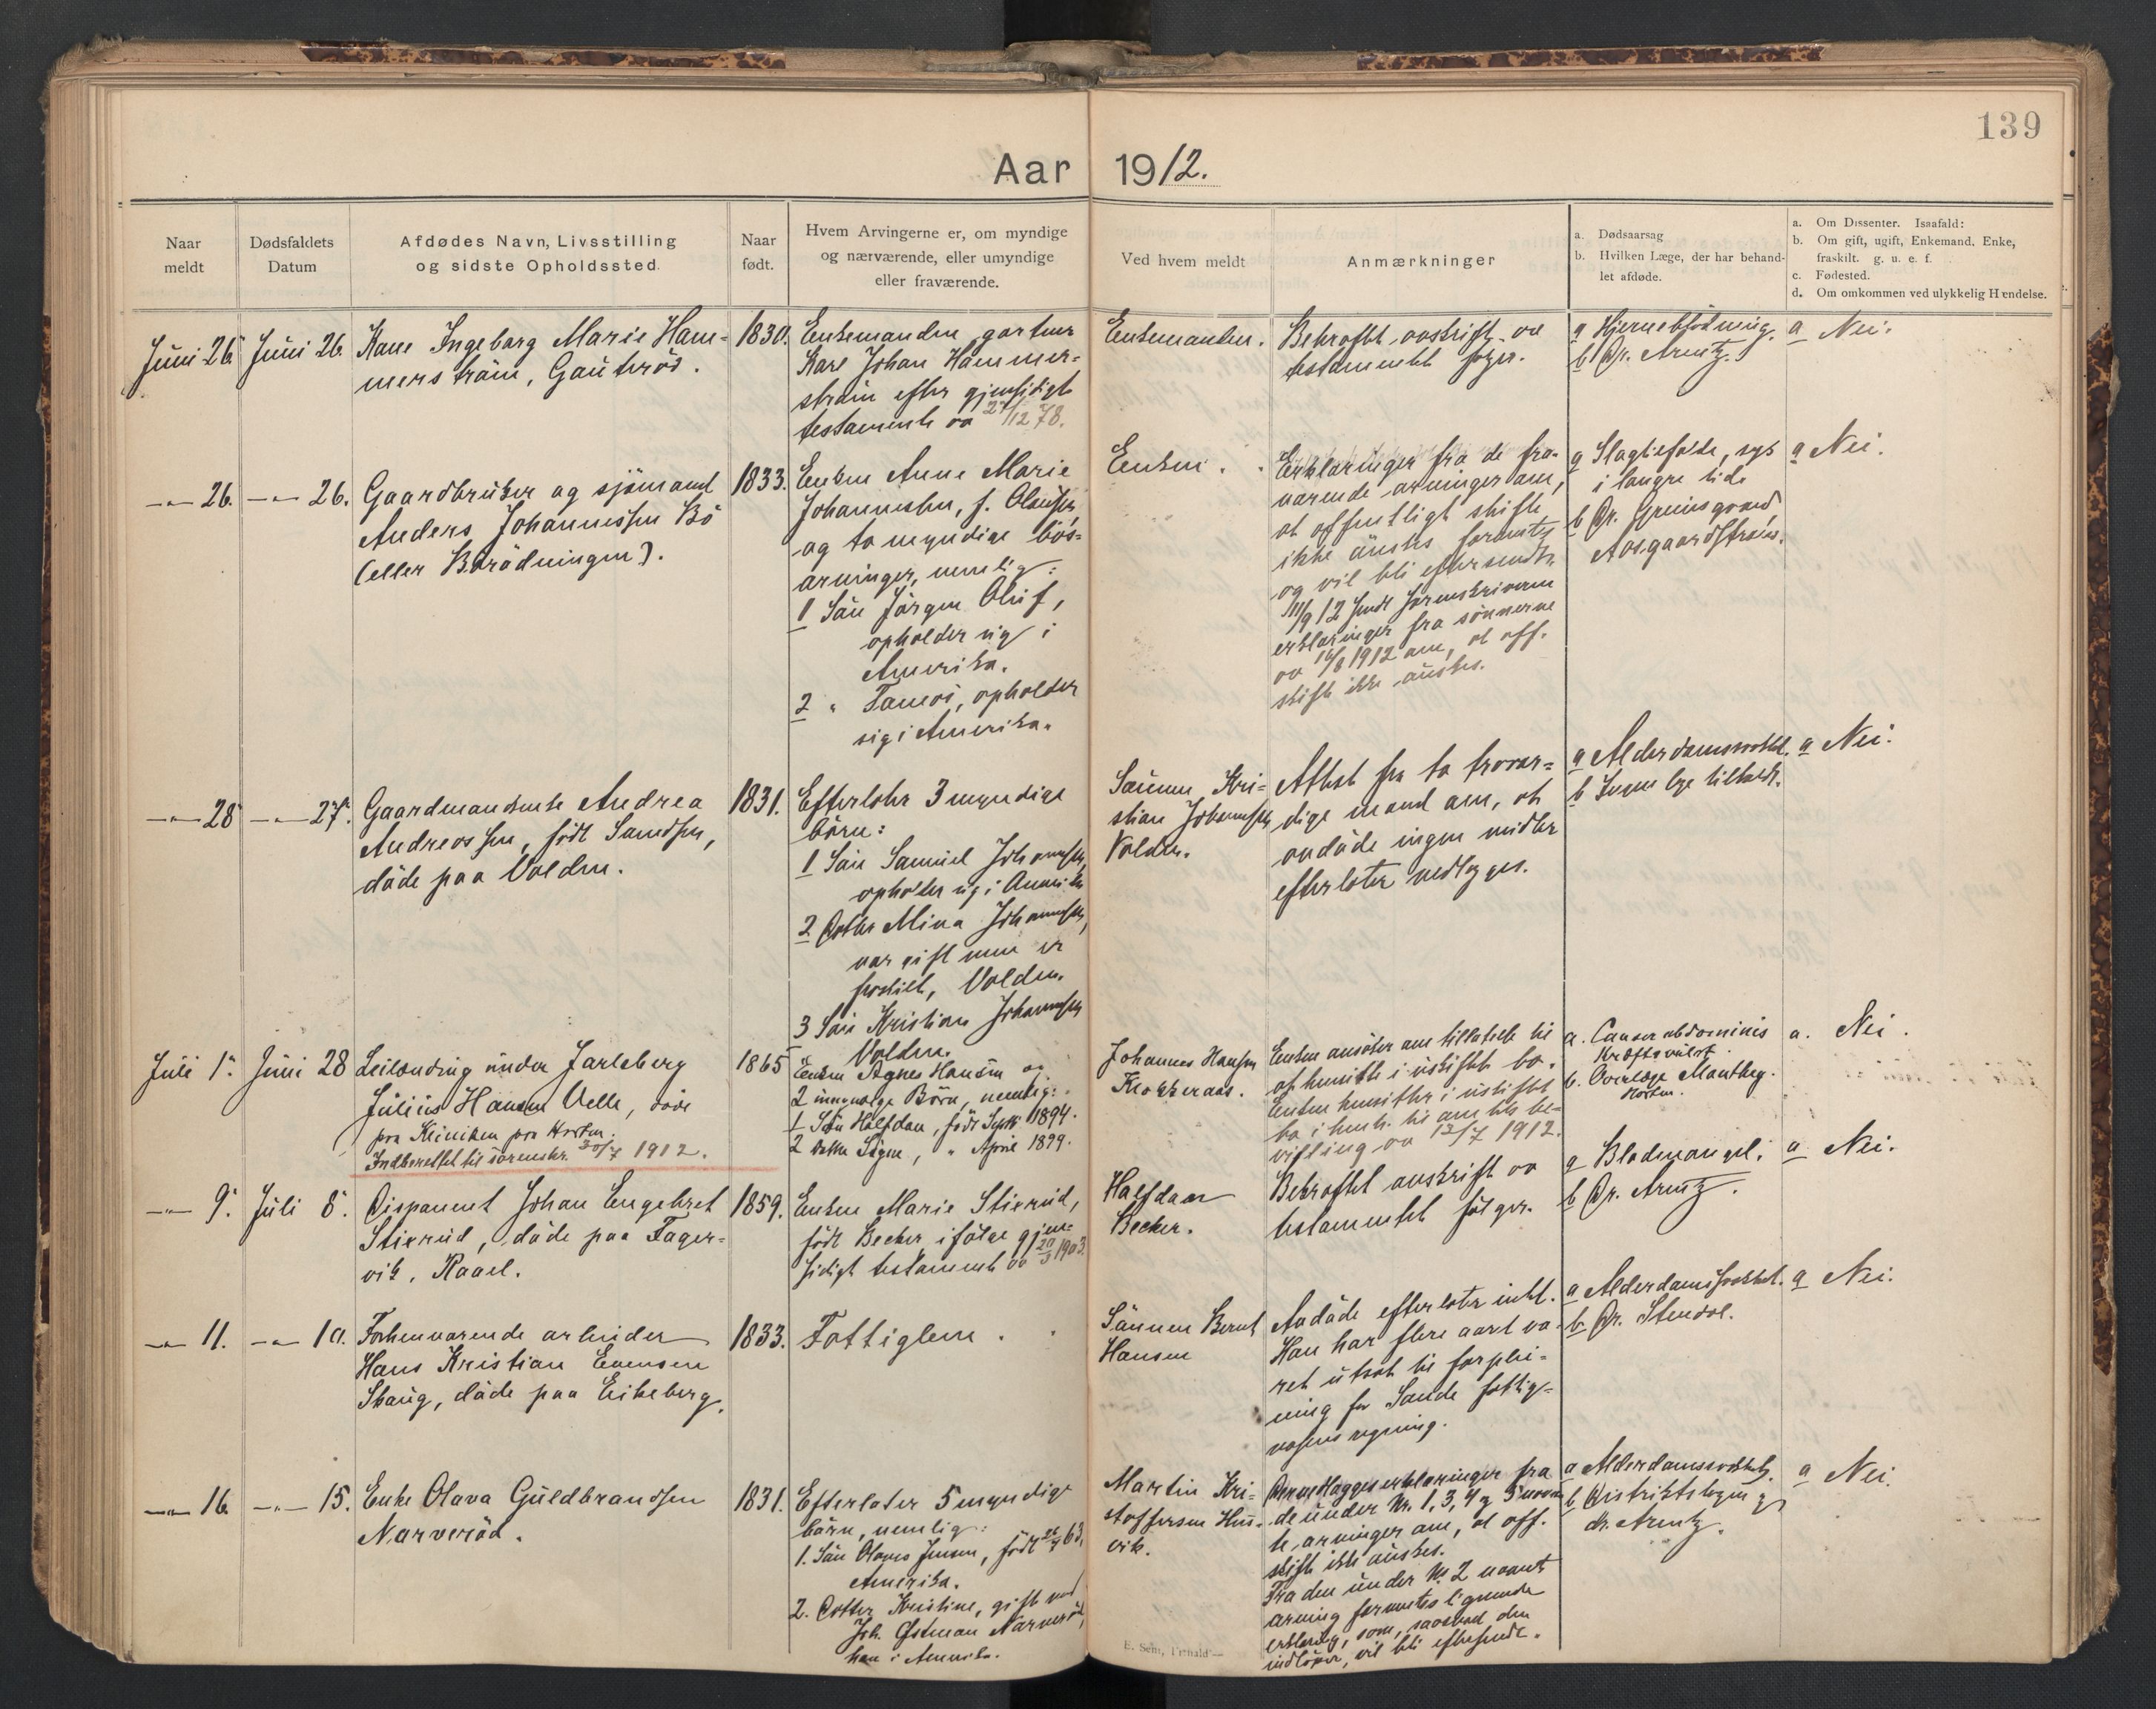 139
Aar 1912.
Naar
meldt
Dødsfaldets
Datum
Afdødes Navn, Livsstilling
og sidste Opholdssted.
Naar
født.
Hvem Arvingerne er, om myndige
og nærværende, eller umyndige
eller fraværende.
Ved hvem meldt
Anmærkninger
a. Dødsaarsag
b. Hvilken Læge, der har behand-
let afdøde.
a. Om Dissenter. Isaafald:
b. Om gift, ugift, Enkemand. Enke,
fraskilt. g. u. e. f.
c. Fødested.
d. Om omkommen ved ulykkelig Hændelse.
Juni 26. Juni 26.
Kone Ingeborg Marie Ham-
merström, Gauteröd.
1830.
Enkemanden gartner
Karl Johan Hammer-
ström efter gjensidigt
testamente av 27/12 78.
Enkemanden.
Bekræftet avskrift av
testamentet følger.
a Hjerneblödning.
b Dr. Arentz.
a Nei.
-"- 26. -"- 26.
Gaardbruker og sjömand
Anders Johannessen Bö
(eller Börödningen).
1833.
Enken Anne Marie
Johannessen, f. Olausen,
og to myndige livs-
arvinger, nemlig:
1 Sön Jörgen Oluf,
opholder sig i
Amerika.
2 " Tameos, opholder
sig i Amerika.
Enken.
Erklæringer fra de fra-
værende arvinger om,
at offentligt skifte
ikke önskes forventes
og vil bli eftersendt.
11/9 12 sendt sorenskriveren
erklæringer fra sønnerne
av 16/8 1912 om, at off.
skifte ikke önskes.
a Slagtilfælde, syg
i længre tid.
b Dr. Grimsgaard
Aasgaardstrand.
a Nei.
-"- 28 -"- 27.
Gaardmandsenke Andrea
Andreassen, född Samdsen,
döde paa Volden.
1831.
Efterlater 3 myndige
börn:
1 Sön Samuel Johannessen,
opholder sig i Amerika
2 Datter Mina Johannessen,
var gift men er
fraskilt, Volden.
3 Sön Kristian Johannessen
Volden.
Sönnen Kri-
stian Johannessen
Volden.
Attest fra to trovær-
dige mænd om, at
avdöde ingen midler
efterlater vedlægges.
a Alderdomssvakhet.
b Ingen læge tilkaldt.
a Nei.
Juli 1. Juni 28
Leilænding under Jarlsberg
Julius Hansen Velle, döde
paa Kliniken paa Horten.
Indberettet til sorenskr. 30/7 1912.
1865
Enken Agnes Hansen og
2 umyndige Börn, nemlig:
1 Sön Halfdan, född Septr 1894.
2 Datter Signe, " April 1899.
Johannes Hansen
Klokkeraas.
Enken ansöker om tillatelse til
at hensitte i uskiftet bo.
Enken hensitter i uskiftet
bo i henh. til amtets be-
villing av 12/7 1912.
a. Cancer abdominis
Kræftsvulst
b. Overlæge Manthey.
Horten.
a. Nei.
-"- 9. Juli 8.
Disponent Johan Engebret
Stixrud, döde paa Fager-
vik, Raael.
1859.
Enken Marie Stixrud,
född Becker ifölge gjen-
sidigt testamente av 20/3 1903.
Halfdan
Becker.
Bekræftet avskrift av
testamentet fölger.
a Blodmangel.
b Dr. Arentz.
a Nei.
-"- 11. -"- 10.
Forhenværende arbeider
Hans Kristian Evensen
Skaug, döde paa Eikeberg.
1833.
Fattiglem.
Sönnen Bernt
Hansen
Avdöde efterlater intet.
Han har flere aar væ-
ret utsat til forplei-
ning for Sande fattig-
væsens regning.
a Alderdomssvakhet.
b Dr. Stendal.
a Nei.
-"- 16. -"- 15.
Enke Olava Guldbrandsen
Narveröd.
1831.
Efterlater 5 myndige
börn, nemlig:
1. Sön Olaves Jensen, född 26/4 63,
Amerika.
2. Datter Kristine, gift med
Joh. Östman Narveröd,
han i Amerika.
Martin Kri-
stoffersen Hus-
vik.
Der vedlægges erklæringer fra
de under Nr. 1, 3, 4 og 5 nævn-
te arvinger om, at off.
skifte ikke önskes.
Fra den under No 2 nævnt
arving forventes lignende
erklæring, som, saasnart den
indlöper, vil bli eftersendt.
a Alderdomssvakhet.
b Distriktslægen
dr. Arentz.
a Nei.
E. Sem, Fr.hald